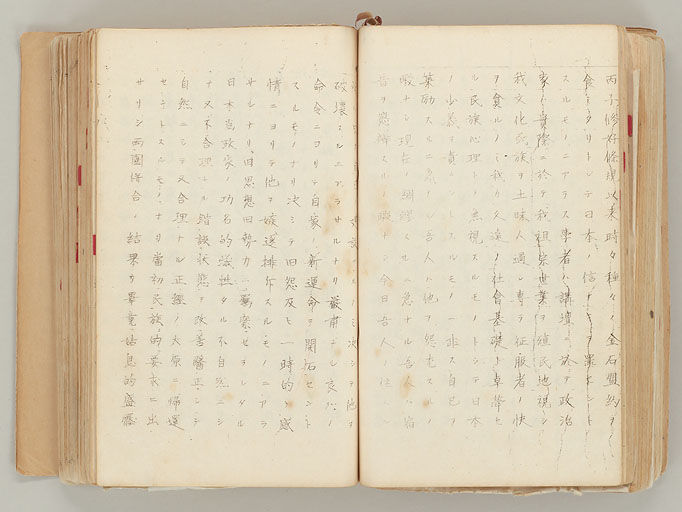 丙子修好條規以来時々種々ノ金石盟約ヲ
食ミタリトシテ日本ノ信ナキヲ罪セント
スルモノニアラス学者ハ講壇ニ於テ政治
家ハ実際ニ於テ我祖宗世業ヲ植民地視シ
我文化民族ヲ土昧人遇シ専ラ征服者ノ快
ヲ貪ルノミ我カ久遠ノ社会基礎ト卓犖セ
ル民族心理トヲ無視スルモノトシテ日本
ノ少義ヲ責ントスルモノニ非ス自己ヲ
策励スルニ急ナル吾人ハ他ヲ怨尤スルノ
暇ナシ現在ヲ綢繆スルニ急ナル吾人ハ宿
昔ヲ懲辨スルノ暇ナシ今日吾人ノ任
決シテ他ヲ
破壊スルニアラサルナリ厳粛ナル良心ノ
命令ニヨリテ自家ノ新運命ヲ開拓セント
スルモノナリ決シテ旧怨及ヒ一時的ノ感
情ニヨリテ他ヲ嫉逐排斥スルモノニアラ
サルナリ旧思想旧勢力ニ羈縻セラレタル
日本為政家ノ功名的犠牲タル不自然ニシ
テ又不合理ナル錯誤状態ヲ改善匡正シ
自然ニシテ又合理ナル正經ノ大原ニ帰還
セシメントスルモノナリ當初民族的要求ニ出
サリシ両国併合ノ結果カ畢竟姑息的威壓